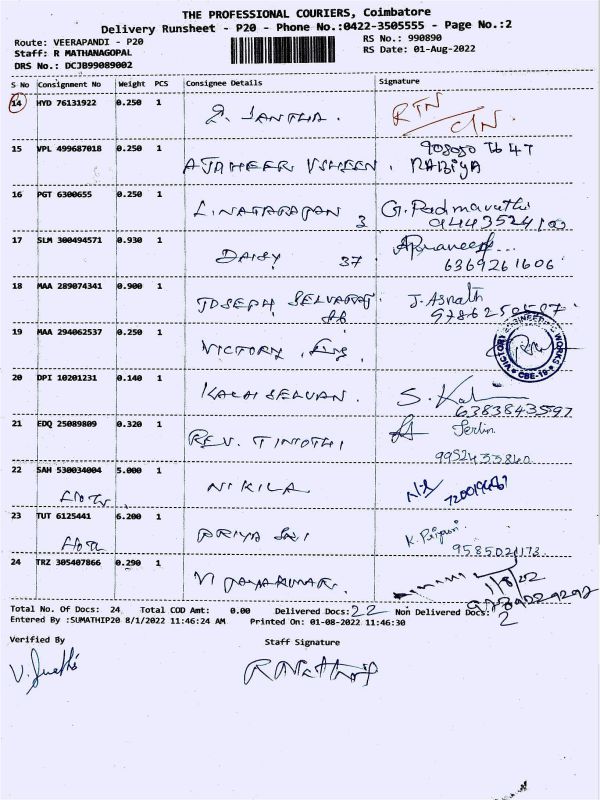 THE PROFESSIONAL COURIERS, Coimbatore
Delivery Runsheet - P20 - Phone No.:0422-3505555 - Page No.:2
Route: VEERAPANDI - P20
Staff: R MATHANAGOPAL
DRS No.: DCJB99089002
RS No.: 990890
RS Date: 01-Aug-2022
S No Consignment No Weight PCS Consignee Details Signature
14 HYD 76131922 0.250 1 RTN
15 VPL 499687018 0.250 1
RABIYA
16 PGT 6300655 0.250 1 G. Padmavathi
3
17 SLM 300494571 0.930 1 DAISY 37
6369261606
18 MAA 289074341 0.900 1 JOSEPH J. Asnath
19 MAA 294062537 0.250 1 VICTORY
VICTORY ENGINEERING WORKS
CBE-19
20 DPI 10201231 0.140 1 KALAI SELVAN.
6383843597
21 EDQ 25089809 0.320 1 REV. TIMOTHI Jerlin
9952433840
22 SAH 530034004 5.000 1 NIKILA
23 TUT 6125441 6.200 1 PRIYA
24 TRZ 305407866 0.290 1 VIJAYAKUMAR.
1/8/22
Total No. Of Docs: 24 Total COD Amt: 0.00 Delivered Docs: 22 Non Delivered Docs: 2
Entered By :SUMATHIP20 8/1/2022 11:46:24 AM Printed On: 01-08-2022 11:46:30
Verified By Staff Signature